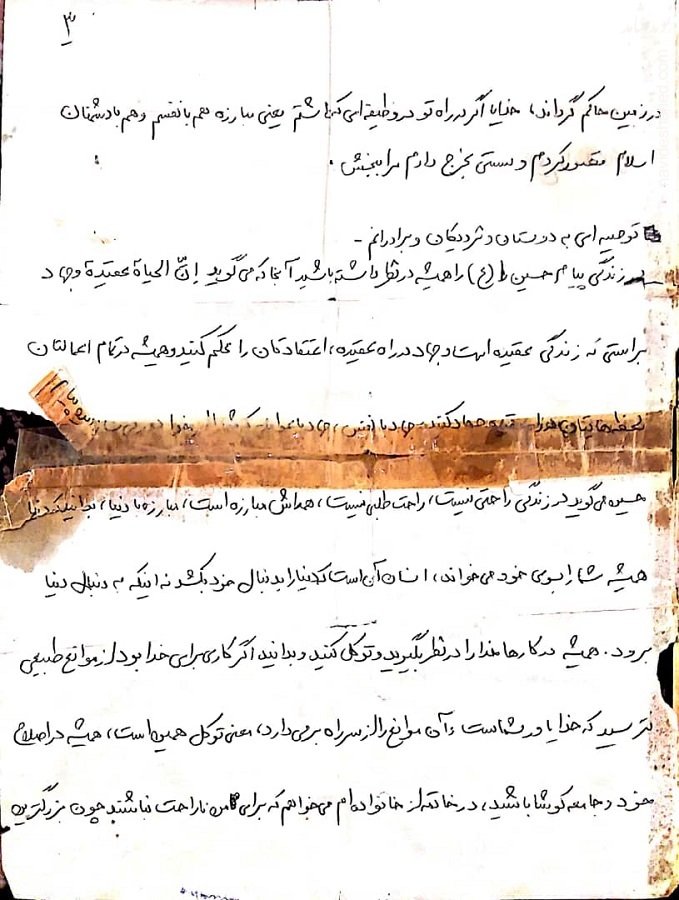 ۳
در زمین حاکم گرداند، خدایا اگر در راه تو در وظیفه ای که داشتم یعنی مبارزه هم با نفسم و هم با دشمنان
اسلام قصور کردم و سستی بخرج دادم مرا ببخش.
توصیه ای به دوستان و نزدیکان و برادرانم -
در زندگی پیام حسین (ع) را همیشه در نظر داشته باشید آنجا که می گوید إنّ الحیاة عقیدة و جهاد
براستی که زندگی عقیده است و جهاد در راه عقیده، اعتقادتان را محکم کنید و همیشه در تمام اعمالتان
جهاد کنید، جهاد با نفس،
حسین می گوید در زندگی راحتی نیست، راحت طلبی نیست، همه اش مبارزه است، مبارزه با دنیا، بدانید که دنیا
همیشه شما را بسوی خود می خواند، انسان آن است که دنیا را بدنبال خود بکشد نه اینکه به دنبال دنیا
برود. همیشه در کارها خدا را در نظر بگیرید و توکل کنید و بدانید اگر کاری برای خدا بود از موانع طبیعی
نترسید که خدا یاور شماست و آن موانع را از سر راه برمی دارد، معنی توکل همین است، همیشه در اصلاح
خود و جامعه کوشا باشید، در خاتمه از خانواده ام می خواهم که برای من ناراحت نباشند چون بزرگترین